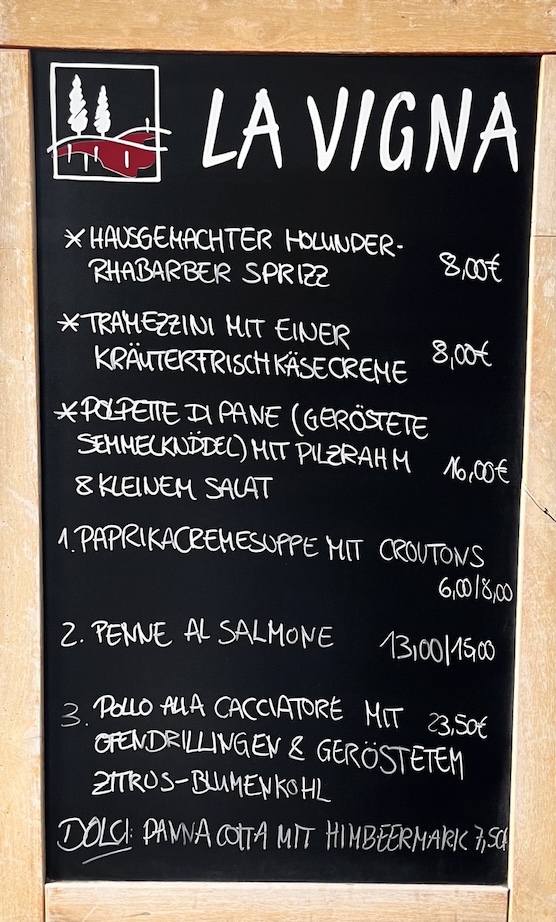 LA VIGNA
* HAUSGEMACHTER HOLUNDER-
RHABARBER SPRIZZ 8,00€
* TRAMEZZINI MIT EINER
KRÄUTERFRISCHKÄSECREME 8,00€
* POLPETTE DI PANE (GERÖSTETE
SEMMELKNÖDEL) MIT PILZRAHM 16,00€
& KLEINEM SALAT
1. PAPRIKACREMESUPPE MIT CROUTONS
6,00/8,00
2. PENNE AL SALMONE 13,00/15,00
3. POLLO ALLA CACCIATORE MIT 23,50€
OFENDRILLINGEN & GERÖSTETEM
ZITRUS-BLUMENKOHL
DOLCI: PANNA COTTA MIT HIMBEERMARK 7,50€